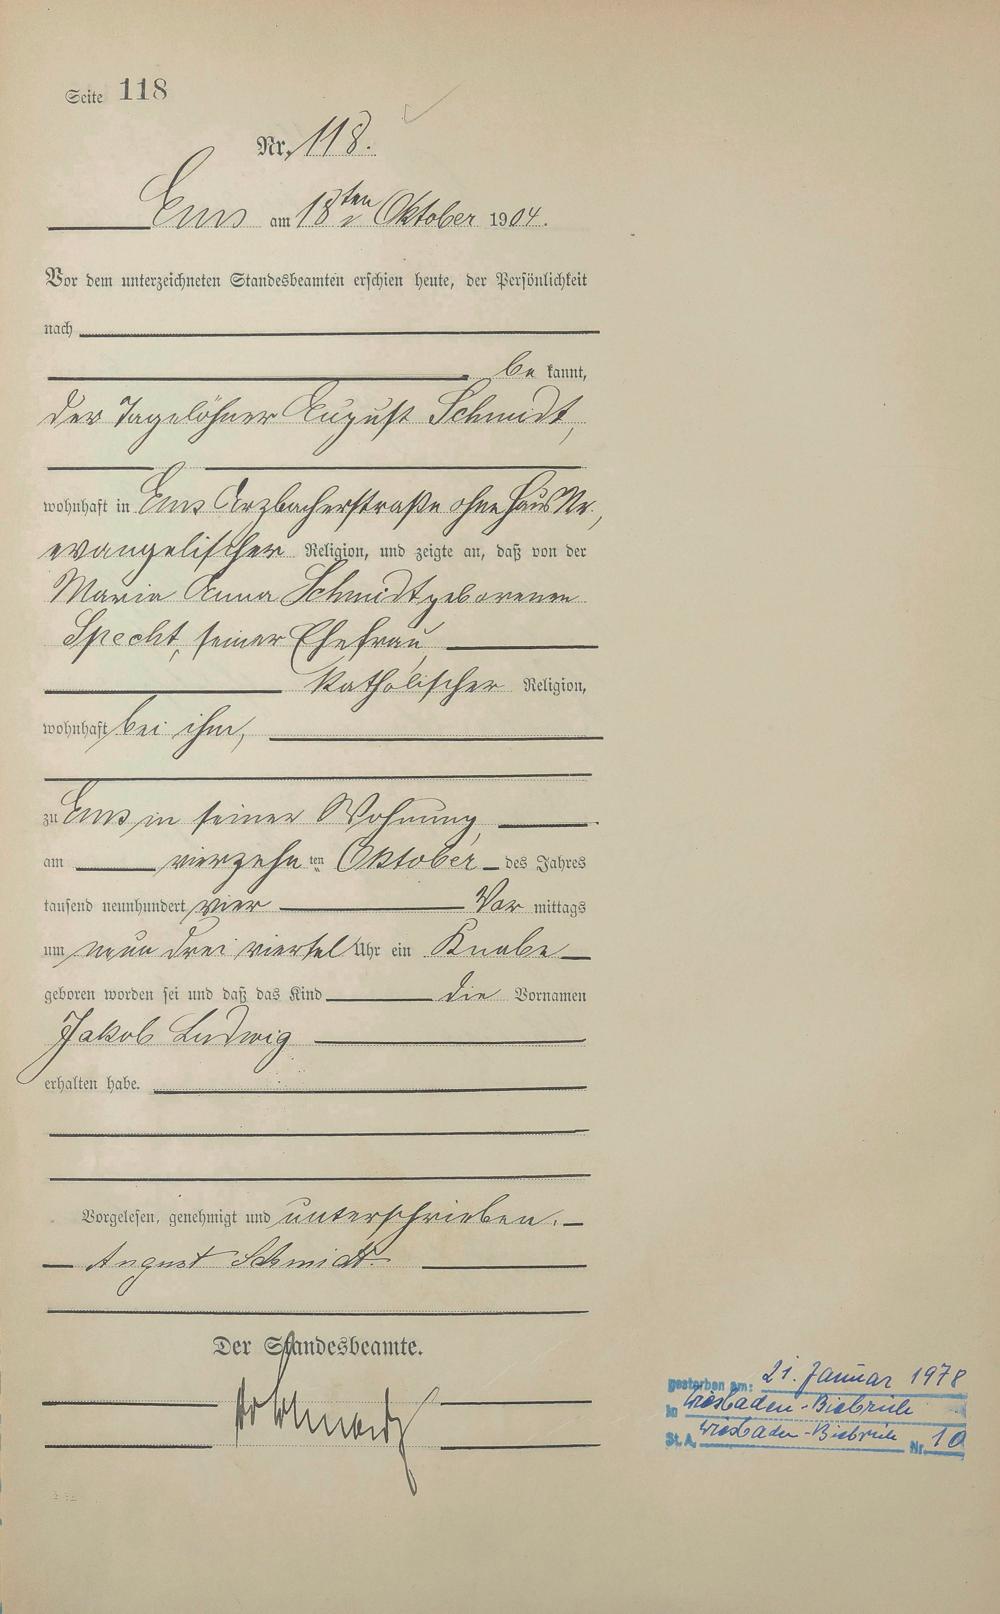 Seite 118
Nr. 118.
Ems am 18ten Oktober 1904.
Vor dem unterzeichneten Standesbeamten erschien heute, der Persönlichkeit
nach
be kannt,
der Tagelöhner August Schmidt,
wohnhaft in Ems Arzbacherstraße ohne Haus Nr.,
evangelischer Religion, und zeigte an, daß von der
Maria Anna Schmidt geborenen
Specht, seiner Ehefrau,
katholischer Religion,
wohnhaft bei ihm,
zu Ems in seiner Wohnung,
am vierzehn ten Oktober des Jahres
tausend neunhundert vier Vor mittags
um neun drei viertel Uhr ein Knabe
geboren worden sei und daß das Kind die Vornamen
Jakob Ludwig
erhalten habe.
Vorgelesen, genehmigt und unterschrieben.
August Schmidt
Der Standesbeamte.
gestorben am: 21. Januar 1978
in Wiesbaden-Biebrich
St. A. Wiesbaden-Biebrich Nr. 10